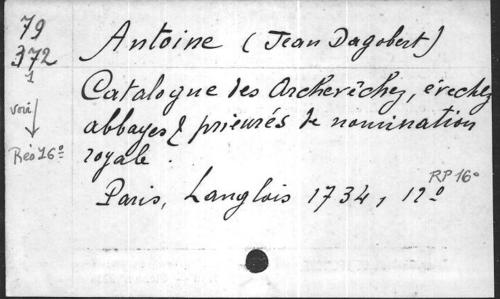 79
372
1
Antoine (Jean Dagobert)
Catalogue des Archevêchez, évechez
abbayes & prieurés de nomination
royale.
Paris, Langlois 1734, 12º
voir
Rés 16º
RP 16º